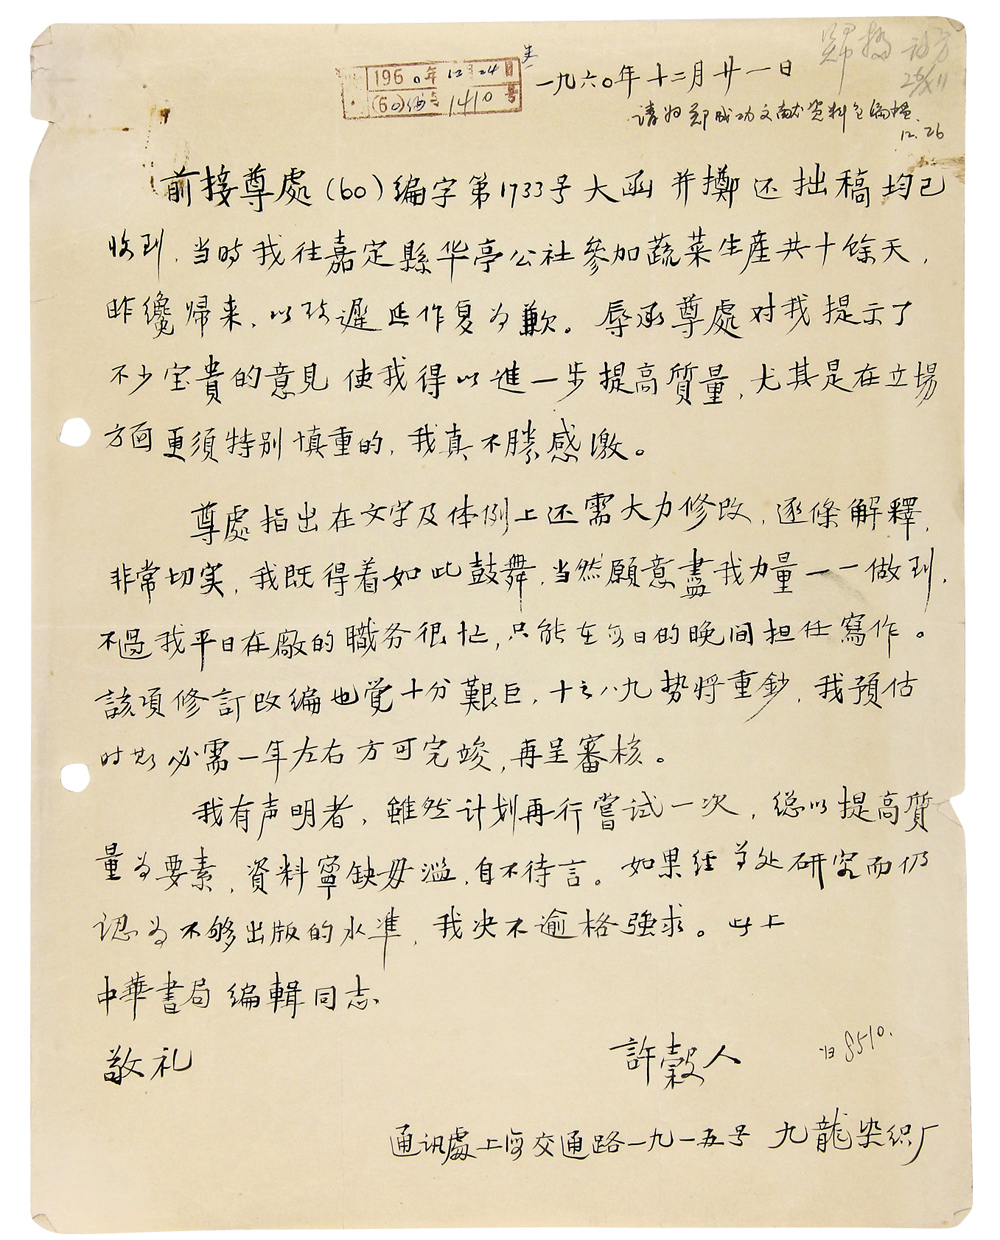 1960年12月24日
(60)收字1410号
一九六〇年十二月廿一日
请归郑成功文献资料
12.26
前接尊處(60)編字第1733号大函并擲还拙稿均已
收到.当時我往嘉定縣华亭公社參加蔬菜生産共十餘天,
昨纔歸来,以致遲延作复为歉。辱承尊處对我提示了
不少宝貴的意見使我得以進一步提高質量,尤其是在立場
方面更須特别慎重的,我真不勝感激。
尊處指出在文字及体例上还需大力修改,逐條解釋,
非常切实,我既得着如此鼓舞,当然願意盡我力量一一做到,
不過我平日在廠的職务很忙,只能在每日的晚间担任寫作。
該項修訂改編也觉十分艱巨,十之八九势將重鈔,我預估
时期必需一年左右方可完竣,再呈審核。
我有声明者,雖然计划再行嘗试一次,總以提高質
量为要素,資料寧缺毋滥,自不待言。如果经尊处研究而仍
認为不够出版的水準,我决不逾格强求。此上
中華書局編輯同志
敬礼
許穀人
8510.
通讯處上海交通路一九一五号 九龍染织厂